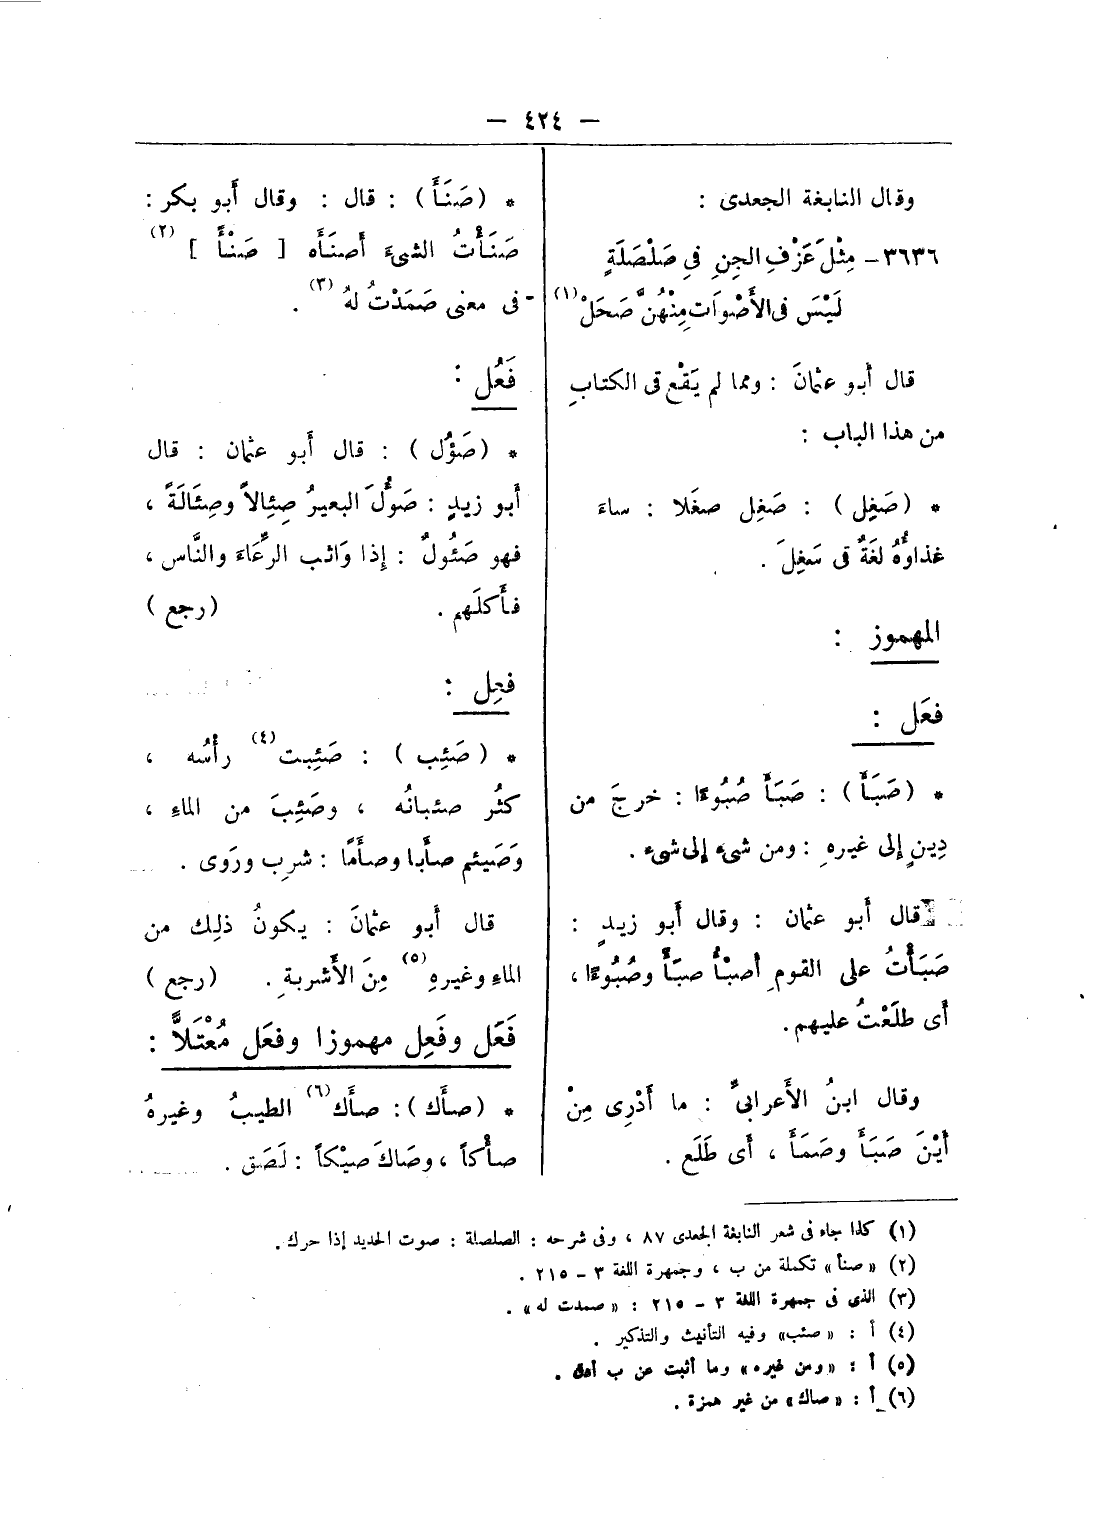 — ٤٢٤ —
وقال النابغة الجعدى :
٣٦٣٦ – مِثْلَ عَزْفِ الجِنِ فِي صَلْصَلَةٍ
لَيْسَ فى الأَصْوَات مِنْهُنَّ صَحَلْ (١)
قال أبو عثمانَ : ومما لم يَقَعْ فى الكتابِ
من هذا الباب :
* (صَغِل) : صَغِل صغَلا : ساءَ
غذاؤُهُ لغَةٌ فى سَغِلَ .
المهموز :
فعَل :
* (صَبَأَ) : صَبَأَ صُبُوءًا : خرجَ من
دِينٍ إلى غيرهِ : ومن شىء إلى شىء .
قال أبو عثمان : وقال أبو زيدٍ :
صَبَأْتُ على القومِ أصبْأُ صبَأً وصُبُوءًا ،
أى طلَعْتُ عليهم .
وقال ابنُ الأَعرابىِّ : ما أَدْرِى مِنْ
أَيْنَ صَبَأَ وصَمَأَ ، أى طَلَع .
* (صَنَأَ) : قال : وقال أَبو بكر :
صَنَأْتُ الشىءَ أَصنَأَه [ صَنْأً ] (٢)
- فى معنى صَمَدْتُ لهُ (٣) .
فَعُل :
* (صَؤُل) : قال أَبو عثمان : قال
أبو زيدٍ : صَؤُلَ البعيرُ صِئِالاً وصِئَالَةً ،
فهو صَئُولٌ : إذا وَاثب الرِّعَاءَ والنَّاس ،
فأَكلَهم . (رجع)
فعِل :
* (صَئِب) : صَئِبت (٤) رأْسُه ،
كثُر صئبانُه ، وصَئِبَ من الماءِ ،
وَصَيئم صأبا وصأَمًا : شرِب ورَوى .
قال أَبو عثمانَ : يكونُ ذلِك من
الماءِ وغيرهِ (٥) مِنَ الأَشربةِ . (رجع)
فَعَل وفَعِل مهموزا وفعَل مُعْتَلاًّ :
* (صأَك) : صأَك (٦) الطيبُ وغيرهُ
صأْكاً ، وصَاكَ صيْكاً : لَصَق .
(١) كذا جاء فى شعر النابغة الجعدى ٨٧ ، وفى شرحه : الصلصلة : صوت الحديد إذا حرك .
(٢) «صنأ» تكملة من ب ، وجمهرة اللغة ٣ – ٢١٥ .
(٣) الذى فى جمهرة اللغة ٣ – ٢١٥ : «صمدت له» .
(٤) أ : «صئب» وفيه التأنيث والتذكير .
(٥) أ : «ومن غيره» وما أثبت عن ب أدق .
(٦) أ : «صاك» من غير همزة .